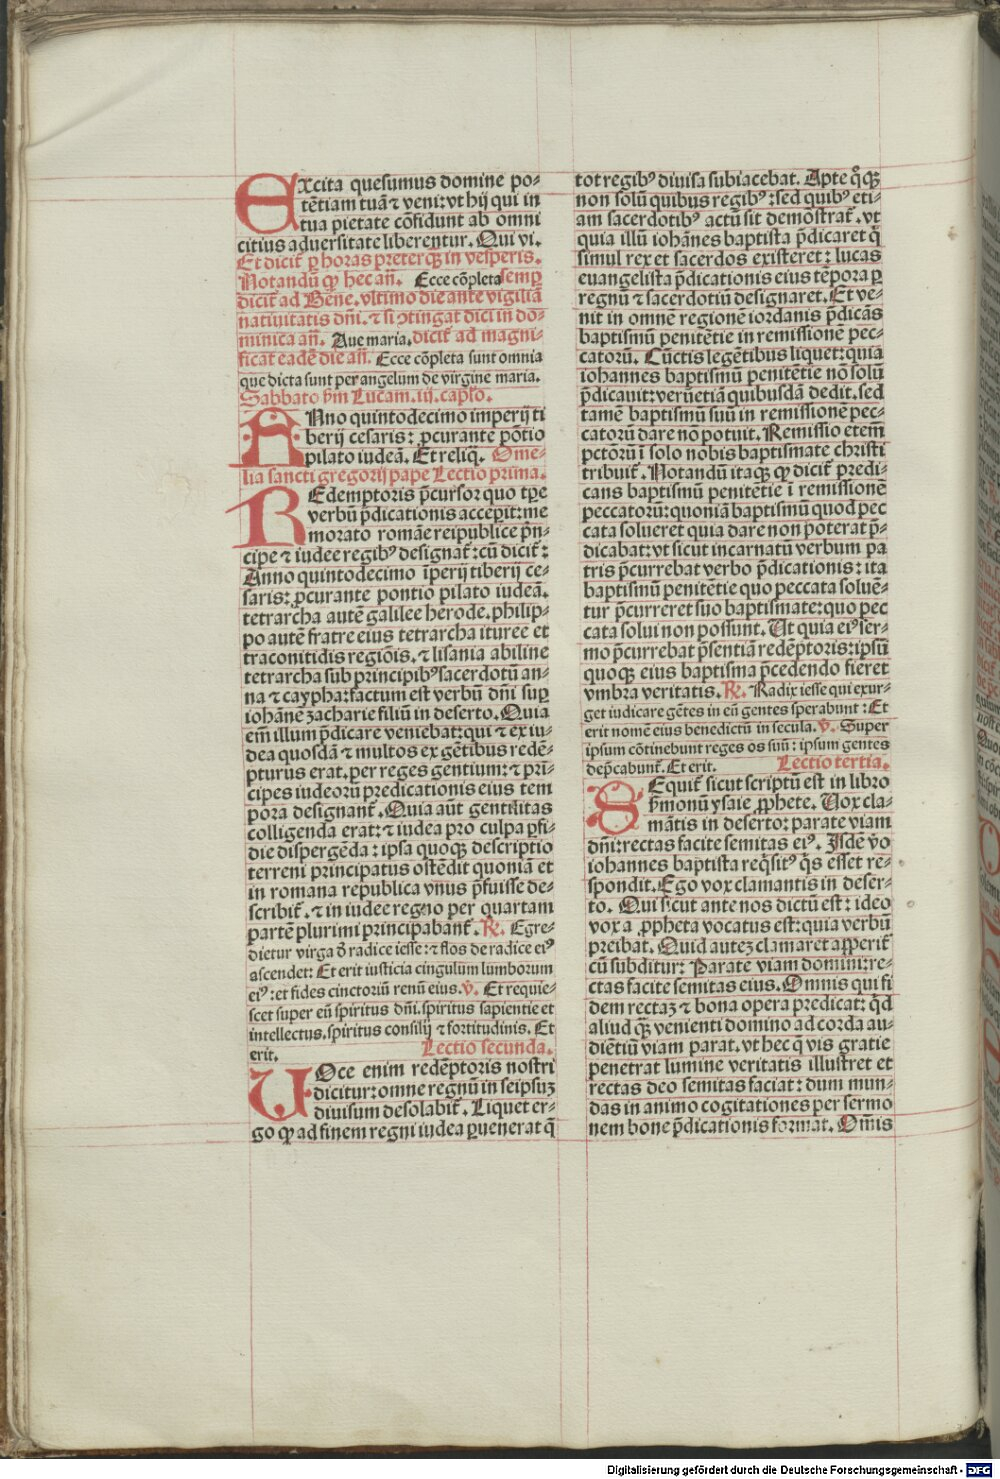 Excita quesumus domine po-
tētiam tuā ⁊ veni: vt hij qui in
tua pietate cōfidunt ab omni
citius adversitate liberentur. Qui vi.
Et dicit̄ ꝑ horas preterqꝫ in vesperis.
Notandū ꝙ hec an̄. Ecce cōpleta semꝑ
dicit̄ ad Bene. vltimo die ante vigiliā
natiuitatis dn̄i. ⁊ si ↄtingat dici in do-
minica an̄. Aue maria. dicit̄ ad magni-
ficat eadē die an̄. Ecce cōpleta sunt omnia
que dicta sunt per angelum de virgine maria.
Sabbato ẜm Lucam. iij. capło.
ANno quintodecimo imperij ti
berij cesaris: ꝓcurante pōtio
pilato iudeā. Et reliq̄. Ome-
lia sancti gregorij pape Lectio prima.
REdemptoris p̄cursor quo tꝑe
verbū p̄dicationis accepit: me
morato romāe reipublice p̄n-
cipe ⁊ iudee regibꝰ designat̄: cū dicit̄:
Anno quintodecimo īperij tiberij ce-
saris: ꝓcurante pontio pilato iudeā.
tetrarcha autē galilee herode. philip-
po autē fratre eius tetrarcha ituree et
traconitidis regiōis. ⁊ lisania abiline
tetrarcha sub principibꝰ sacerdotū an-
na ⁊ caypha: factum est verbū dn̄i suꝑ
iohānē zacharie filiū in deserto. Quia
em̄ illum p̄dicare veniebat: qui ⁊ ex iu-
dea quosdā ⁊ multos ex gētibus redē-
pturus erat. per reges gentium: ⁊ prī-
cipes iudeorū predicationis eius tem
pora designant̄. Quia aūt gentilitas
colligenda erat: ⁊ iudea pro culpa ꝑfi-
die dispergēda: ipsa quoqꝫ descriptio
terreni principatus ostēdit quoniā et
in romana republica vnus p̄fuisse de-
scribit̄. ⁊ in iudee regno per quartam
partē plurimi principabant̄. ℟. Egre-
dietur virga ō radice iesse: ⁊ flos de radice eiꝰ
ascendet: Et erit iusticia cingulum lumborum
eiꝰ: et fides cinctoriū renū eius. ℣. Et requie-
scet super eū spiritus dn̄i. spiritus sapientie et
intellectus. spiritus consilij ⁊ fortitudinis. Et
erit. Lectio secunda.
VOce enim redēptoris nostri
dicitur: omne regnū in seipsuꝫ
diuisum desolabit̄. Liquet er-
go ꝙ ad finem regni iudea ꝑuenerat q̄
tot regibꝰ diuisa subiacebat. Apte qͦqꝫ
non solū quibus regibꝰ: sed quibꝰ eti-
am sacerdotibꝰ actū sit demōstrat̄. vt
quia illū iohānes baptista p̄dicaret q̄
simul rex et sacerdos existeret: lucas
euangelista p̄dicationis eius tēpora ꝑ
regnū ⁊ sacerdotiū designaret. Et ve-
nit in omnē regionē iordanis p̄dicās
baptismū penitētie in remissionē pec-
catorū. Cūctis legētibus liquet: quia
iohannes baptismū penitētie nō solū
p̄dicauit: verūetiā quibusdā dedit. sed
tamē baptismū suū in remissionē pec-
catorū dare nō potuit. Remissio etem̄
pctorū ī solo nobis baptismate christi
tribuit̄. Notandū itaqꝫ ꝙ dicit̄ predi-
cans baptismū penitētie ī remissionē
peccatorū: quoniā baptismū quod pec
cata solueret quia dare non poterat p̄-
dicabat: vt sicut incarnatū verbum pa
tris p̄currebat verbo p̄dicationis: ita
baptismū penitētie quo peccata soluē-
tur p̄curreret suo baptismate: quo pec
cata solui non possunt. Ut quia eiꝰ ser-
mo p̄currebat p̄sentiā redēptoris: ipsū
quoqꝫ eius baptisma p̄cedendo fieret
vmbra veritatis. ℟. Radix iesse qui exur-
get iudicare gētes in eū gentes sperabunt: Et
erit nomē eius benedictū in secula. ℣. Super
ipsum cōtinebunt reges os suū: ipsum gentes
dep̄cabunt̄. Et erit. Lectio tertia.
SEquit̄ sicut scriptū est in libro
ẜmonū ysaie ꝓphete. Vox cla-
mātis in deserto: parate viam
dn̄i: rectas facite semitas eiꝰ. Isdē v̄o
iohannes baptista req̄sitꝰ q̄s esset re-
spondit. Ego vox clamantis in deser-
to. Qui sicut ante nos dictū est: ideo
vox a ꝓpheta vocatus est: quia verbū
preibat. Quid autez clamaret aꝑperit̄
cū subditur: Parate viam domini: re-
ctas facite semitas eius. Omnis qui fi
dem rectaꝫ ⁊ bona opera predicat: q̄d
aliud qꝫ venienti domino ad corda au-
diētiū viam parat. vt hec q̄ vis gratie
penetrat lumine veritatis illustret et
rectas deo semitas faciat: dum mun-
das in animo cogitationes per sermo
nem bone p̄dicationis format. Om̄is
Digitalisierung gefördert durch die Deutsche Forschungsgemeinschaft - DFG